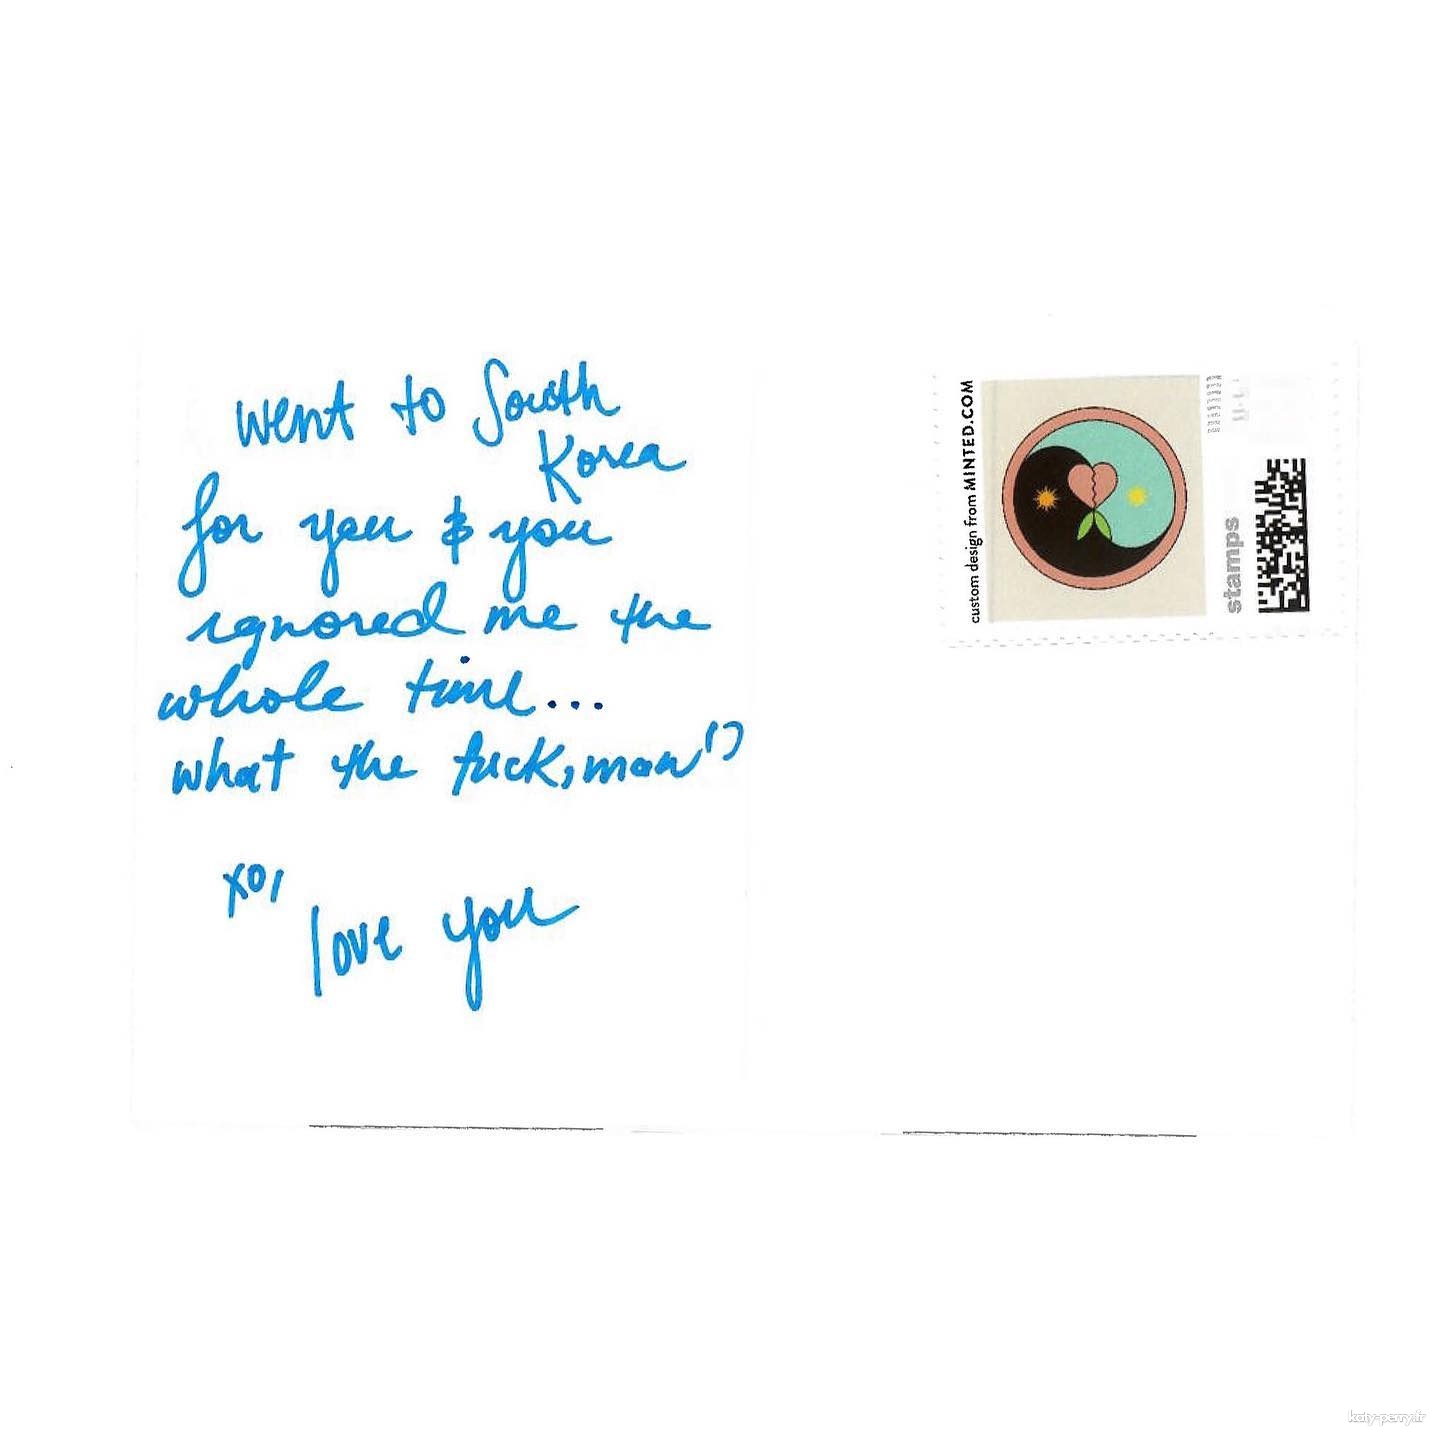 went to South
Korea
for you & you
ignored me the
whole time...
what the fuck, man!?
xo,
love you
custom design from MINTED.COM
stamps
katy-perry.fr